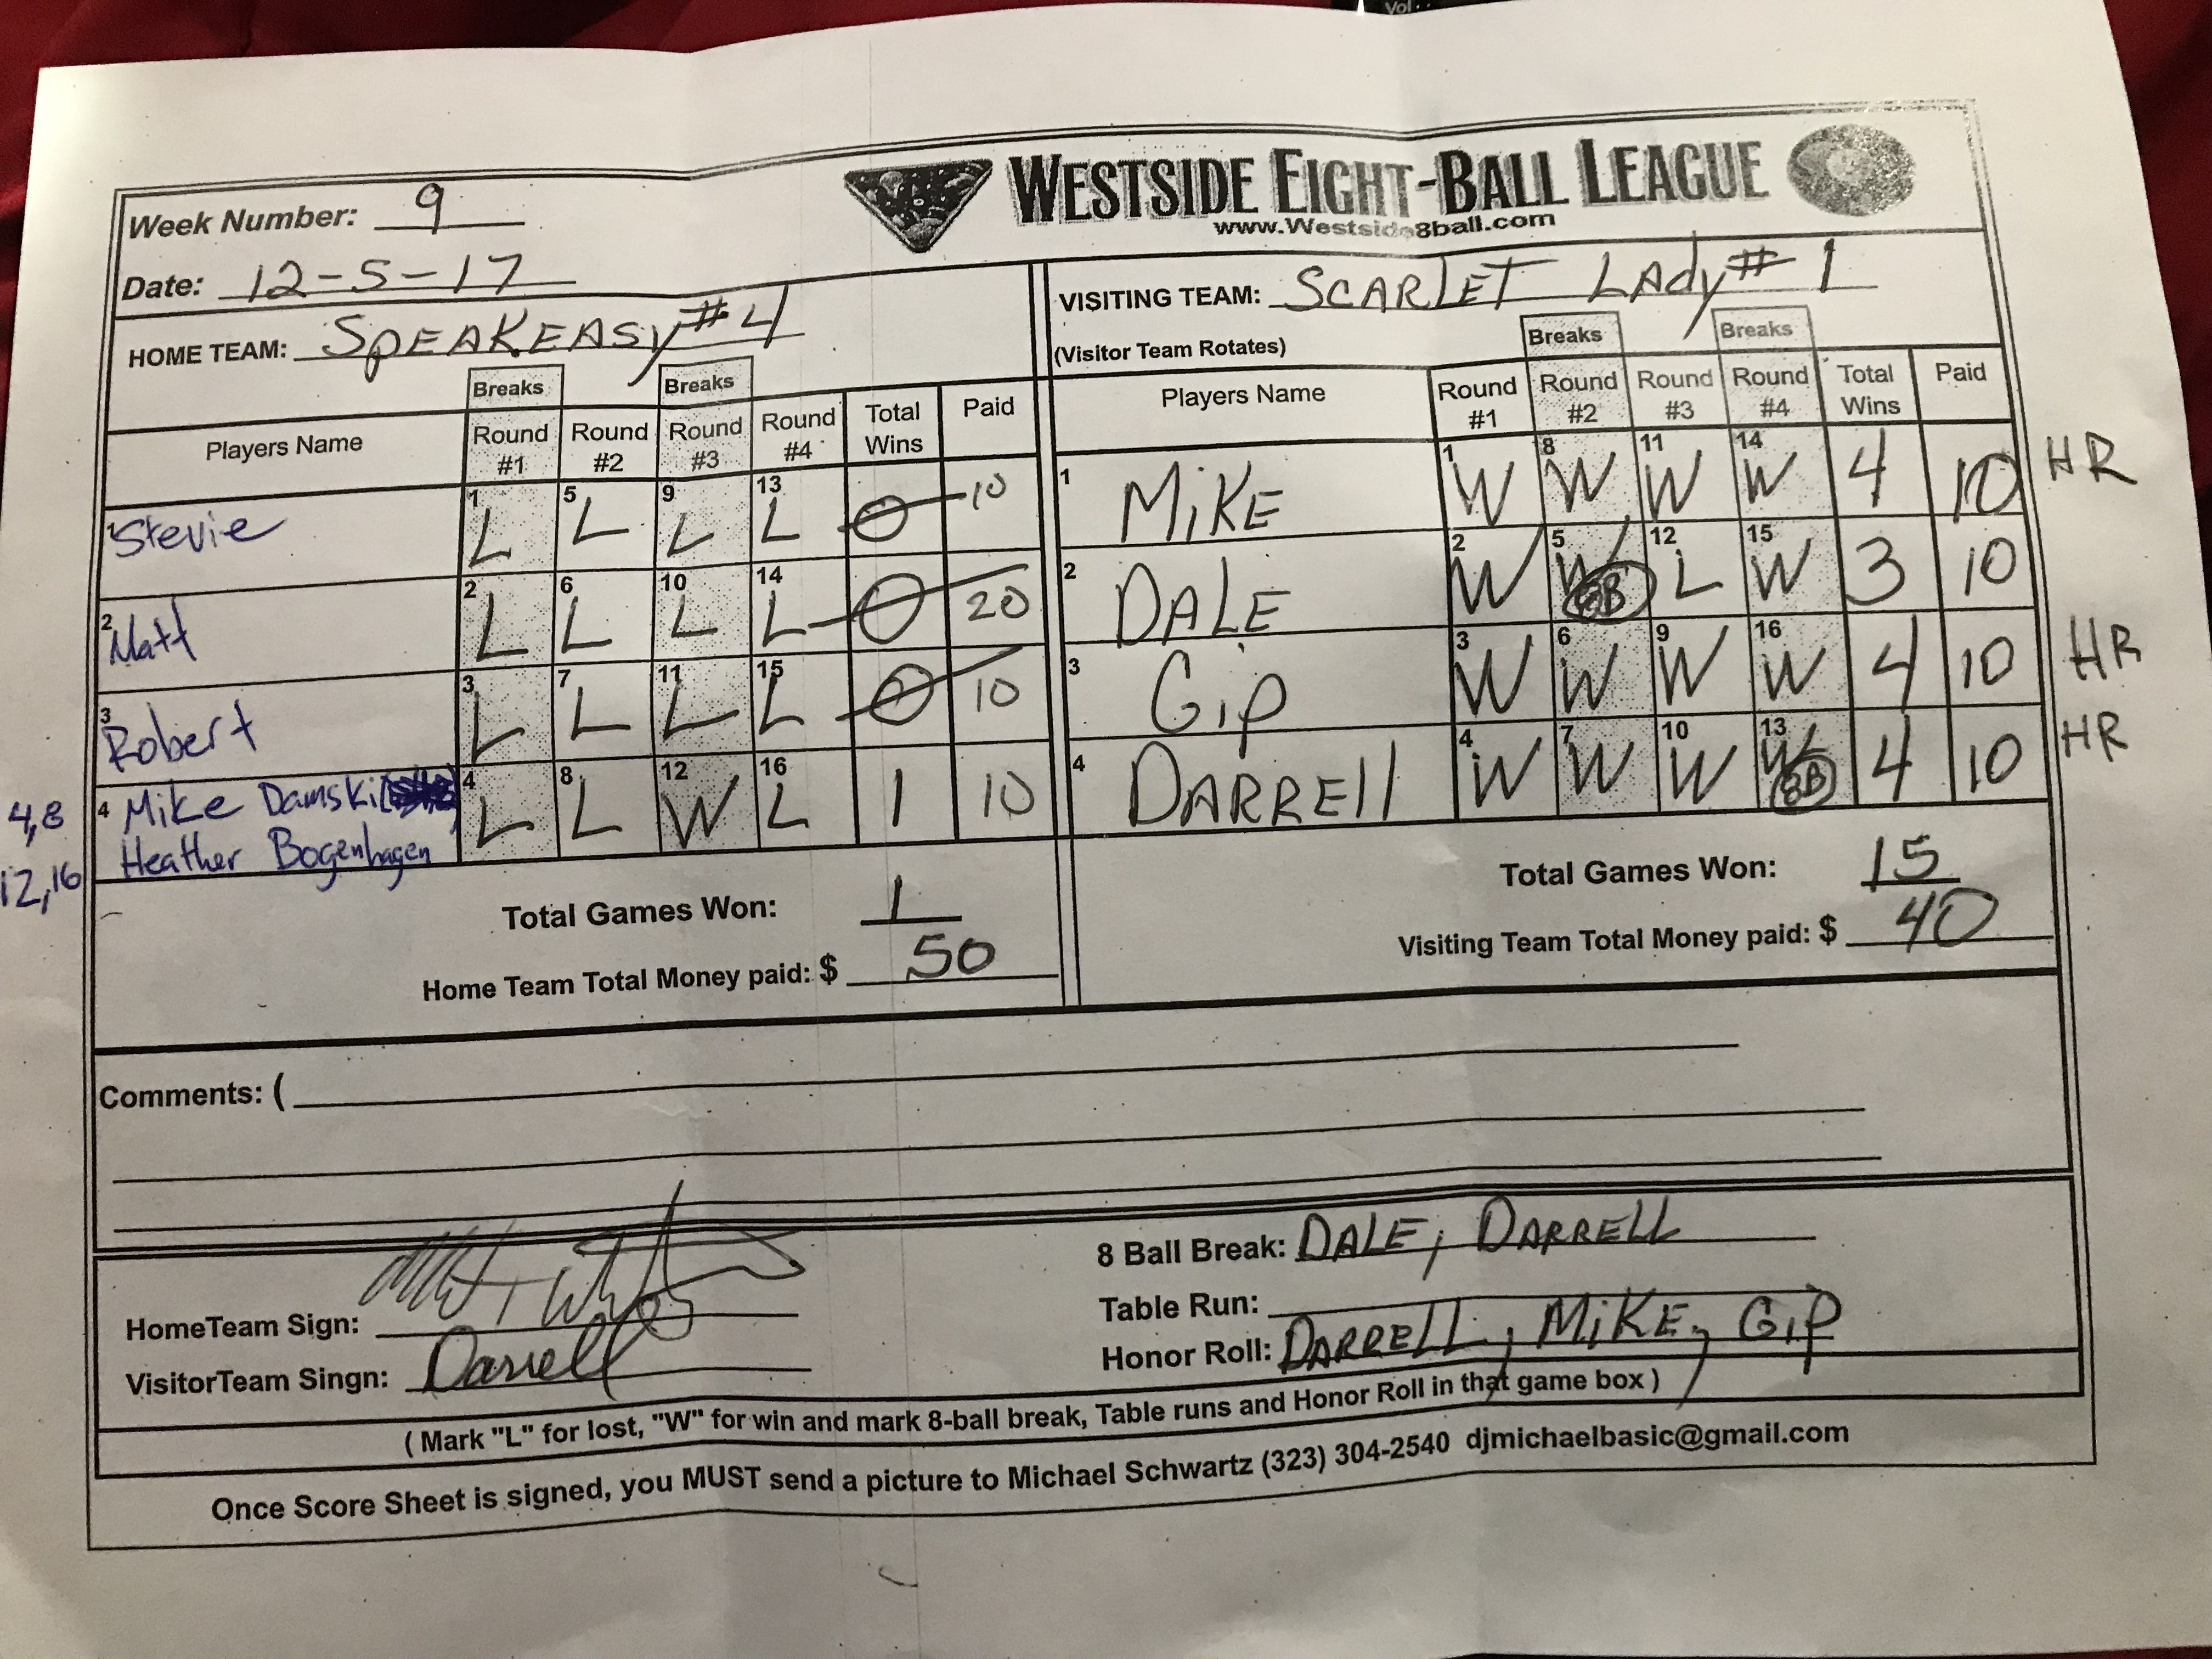 Vol
WESTSIDE EIGHT-BALL LEAGUE
www.Westside8ball.com
Week Number: 9
Date: 12-5-17
HOME TEAM: SPEAKEASY #4
VISITING TEAM: SCARLET LADY #1
(Visitor Team Rotates)
Breaks Breaks
Players Name Round #1 Round #2 Round #3 Round #4 Total Wins Paid
1 Stevie 1 L 5 L 9 L 13 L 0 10
2 Matt 2 L 6 L 10 L 14 L 0 20
3 Robert 3 L 7 L 11 L 15 L 0 10
4,8 4 Mike Damski 4 L 8 L 12 W 16 L 1 10
12,16 Heather Bogenhagen
Total Games Won: 1
Home Team Total Money paid: $ 50
Breaks Breaks
Players Name Round #1 Round #2 Round #3 Round #4 Total Wins Paid
1 MIKE 1 W 8 W 11 W 14 W 4 10 HR
2 DALE 2 W 5 W 8B 12 L 15 W 3 10
3 Gip 3 W 6 W 9 W 16 W 4 10 HR
4 DARRELL 4 W 7 W 10 W 13 W 8B 4 10 HR
Total Games Won: 15
Visiting Team Total Money paid: $ 40
Comments: (
HomeTeam Sign:
VisitorTeam Singn: Darrell
8 Ball Break: DALE, DARRELL
Table Run:
Honor Roll: DARRELL, MIKE, Gip
( Mark "L" for lost, "W" for win and mark 8-ball break, Table runs and Honor Roll in that game box )
Once Score Sheet is signed, you MUST send a picture to Michael Schwartz (323) 304-2540 djmichaelbasic@gmail.com